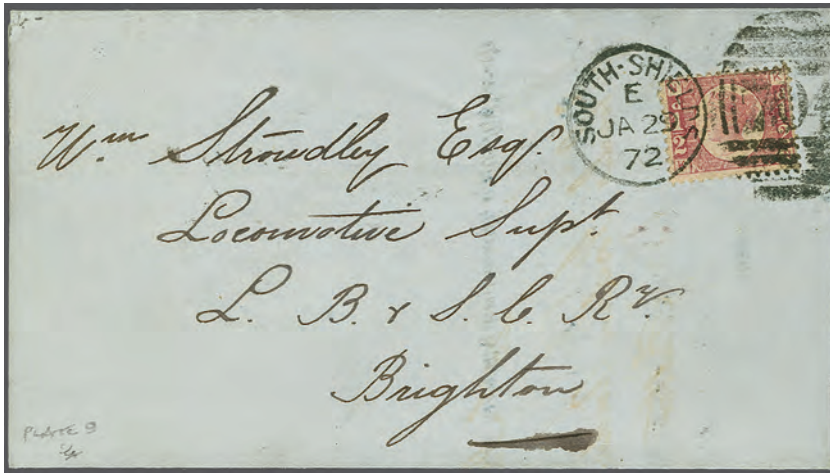 SOUTH-SHIELDS
E
JA 29
72
Wm Stroudley Esqr.
Locomotive Supt.
L. B. & S. C. Ry.
Brighton
PLATE 9